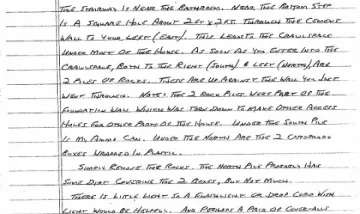 THE STAIRWAY IS NEAR THE BATHROOM. NEAR THE BOTTOM STEP
IS A SQUARE HOLE ABOUT 2FT X 2FT. THROUGH THE CEMENT
WALL TO YOUR LEFT (EAST). THIS LEADS TO THE CRAWLSPACE
UNDER MOST OF THE HOUSE. AS SOON AS YOU ENTER INTO THE
CRAWLSPACE, BOTH TO THE RIGHT (SOUTH) & LEFT (NORTH), ARE
2 PILES OF ROCKS. THESE ARE UP AGAINST THE WALL YOU JUST
WENT THROUGH. NOTE! THE 2 ROCK PILES WERE PART OF THE
FOUNDATION WALL WHICH WAS TORN DOWN TO MAKE OTHER ACCESS
HOLES FOR OTHER PARTS OF THE HOUSE. UNDER THE SOUTH PILE
IS MY AMMO CAN. UNDER THE NORTH ARE THE 2 CARDBOARD
BOXES WRAPPED IN PLASTIC.
SIMPLY REMOVE THE ROCKS. THE NORTH PILE PROBABLY HAS
SOME DIRT COVERING THE 2 BOXES, BUT NOT MUCH.
THERE IS LITTLE LIGHT SO A FLASHLIGHT OR DROP CORD WITH
LIGHT WOULD BE HELPFUL. AND PERHAPS A PAIR OF COVERALLS